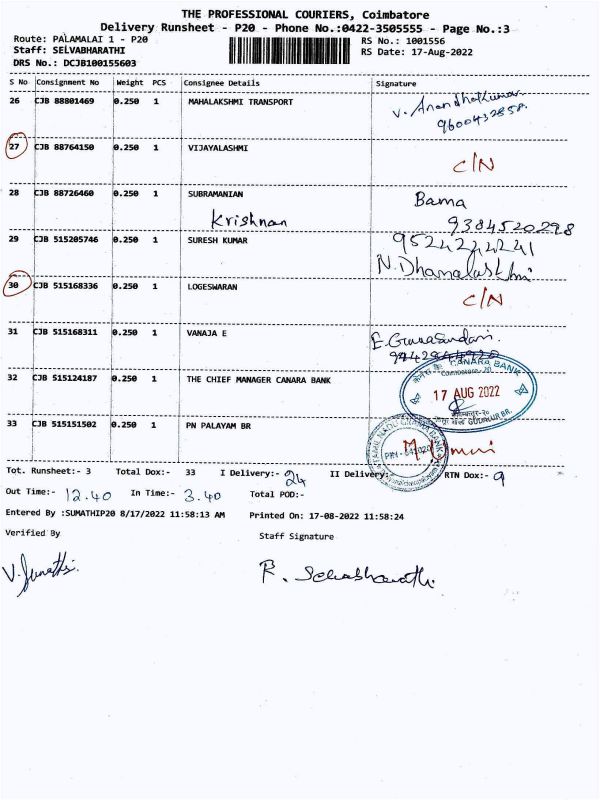 THE PROFESSIONAL COURIERS, Coimbatore
Delivery Runsheet - P20 - Phone No.:0422-3505555 - Page No.:3
Route: PALAMALAI 1 - P20 RS No.: 1001556
Staff: SELVABHARATHI RS Date: 17-Aug-2022
DRS No.: DCJB100155603
S No Consignment No Weight PCS Consignee Details Signature
26 CJB 88801469 0.250 1 MAHALAKSHMI TRANSPORT V. Anandhakumar
9600432858
27 CJB 88764150 0.250 1 VIJAYALASHMI C/N
28 CJB 88726460 0.250 1 SUBRAMANIAN Bama
Krishnan 9384520298
29 CJB 515205746 0.250 1 SURESH KUMAR 9524222241
N. Dhanalakshmi
30 CJB 515168336 0.250 1 LOGESWARAN C/N
31 CJB 515168311 0.250 1 VANAJA E E. Gunasundari
32 CJB 515124187 0.250 1 THE CHIEF MANAGER CANARA BANK
CANARA BANK
17 AUG 2022
GUDALUR BR.
33 CJB 515151502 0.250 1 PN PALAYAM BR
TAMIL NADU GRAMA BANK
PIN - 641020
Tot. Runsheet:- 3 Total Dox:- 33 I Delivery:- 24 II Delivery:- RTN Dox:- 9
Out Time:- 12.40 In Time:- 3.40 Total POD:-
Entered By :SUMATHIP20 8/17/2022 11:58:13 AM Printed On: 17-08-2022 11:58:24
Verified By Staff Signature